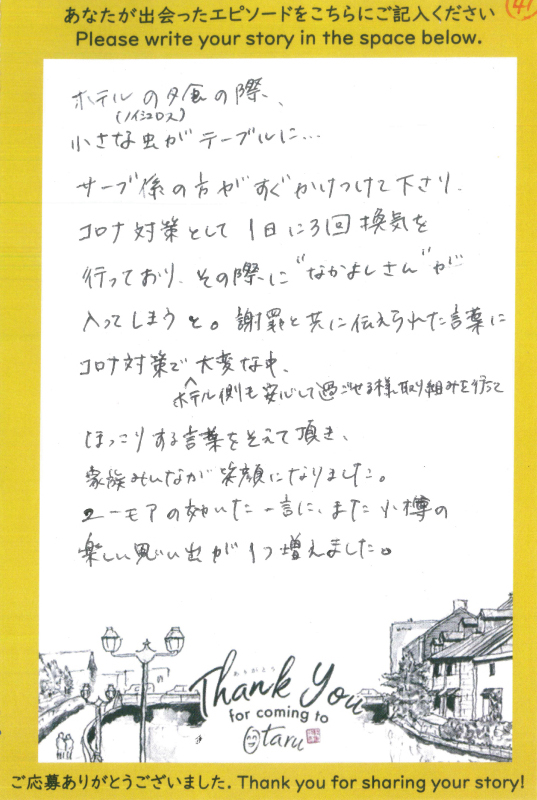 あなたが出会ったエピソードをこちらにご記入ください
41
Please write your story in the space below.
ホテルの夕食の際、
(ノイシュロス)
小さな虫がテーブルに…
サーブ係の方がすぐかけつけて下さり、
コロナ対策として1日に3回換気を
行っており、その際に"なかよしさん"が
入ってしまうと。謝罪と共に伝えられた言葉に
コロナ対策で大変な中、
ホテル側も安心して過ごせる様、取り組みを行って
ほっこりする言葉をそえて頂き、
家族みんなが笑顔になりました。
ユーモアの効いた一言に、また小樽の
楽しい思い出が1つ増えました。
ありがとう
Thank You
for coming to
Otaru
ご応募ありがとうございました. Thank you for sharing your story!